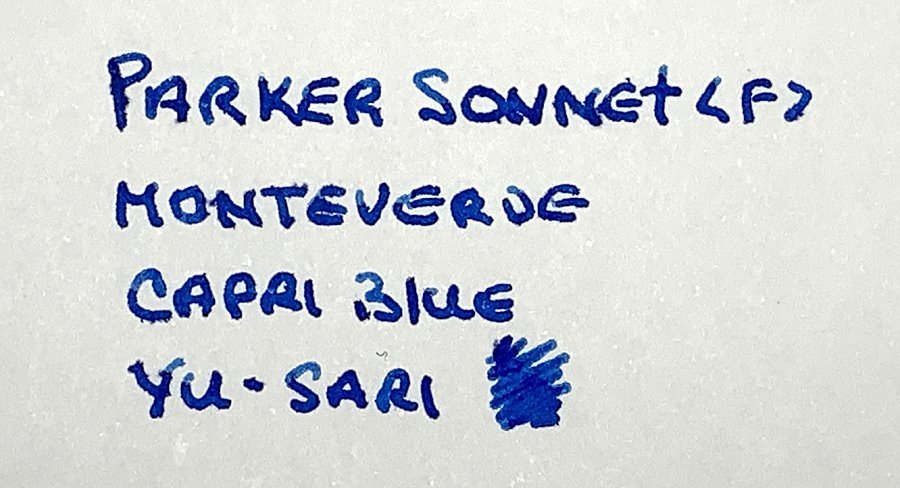 PARKER SONNEt <F>
MONTEVERDE
CAPRI BlUE
YU-SARI